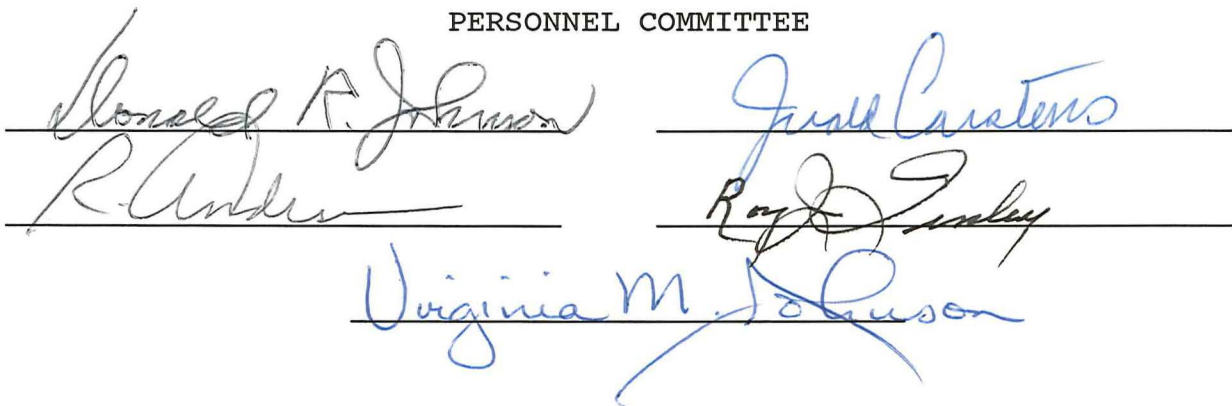 PERSONNEL COMMITTEE
Donald R. Johnson
Carstens
R. Andrew
Roy J.
Virginia M. Johnson